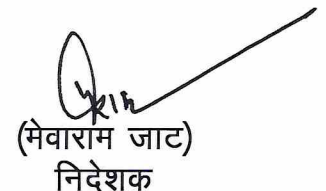 (मेवाराम जाट)
निदेशक